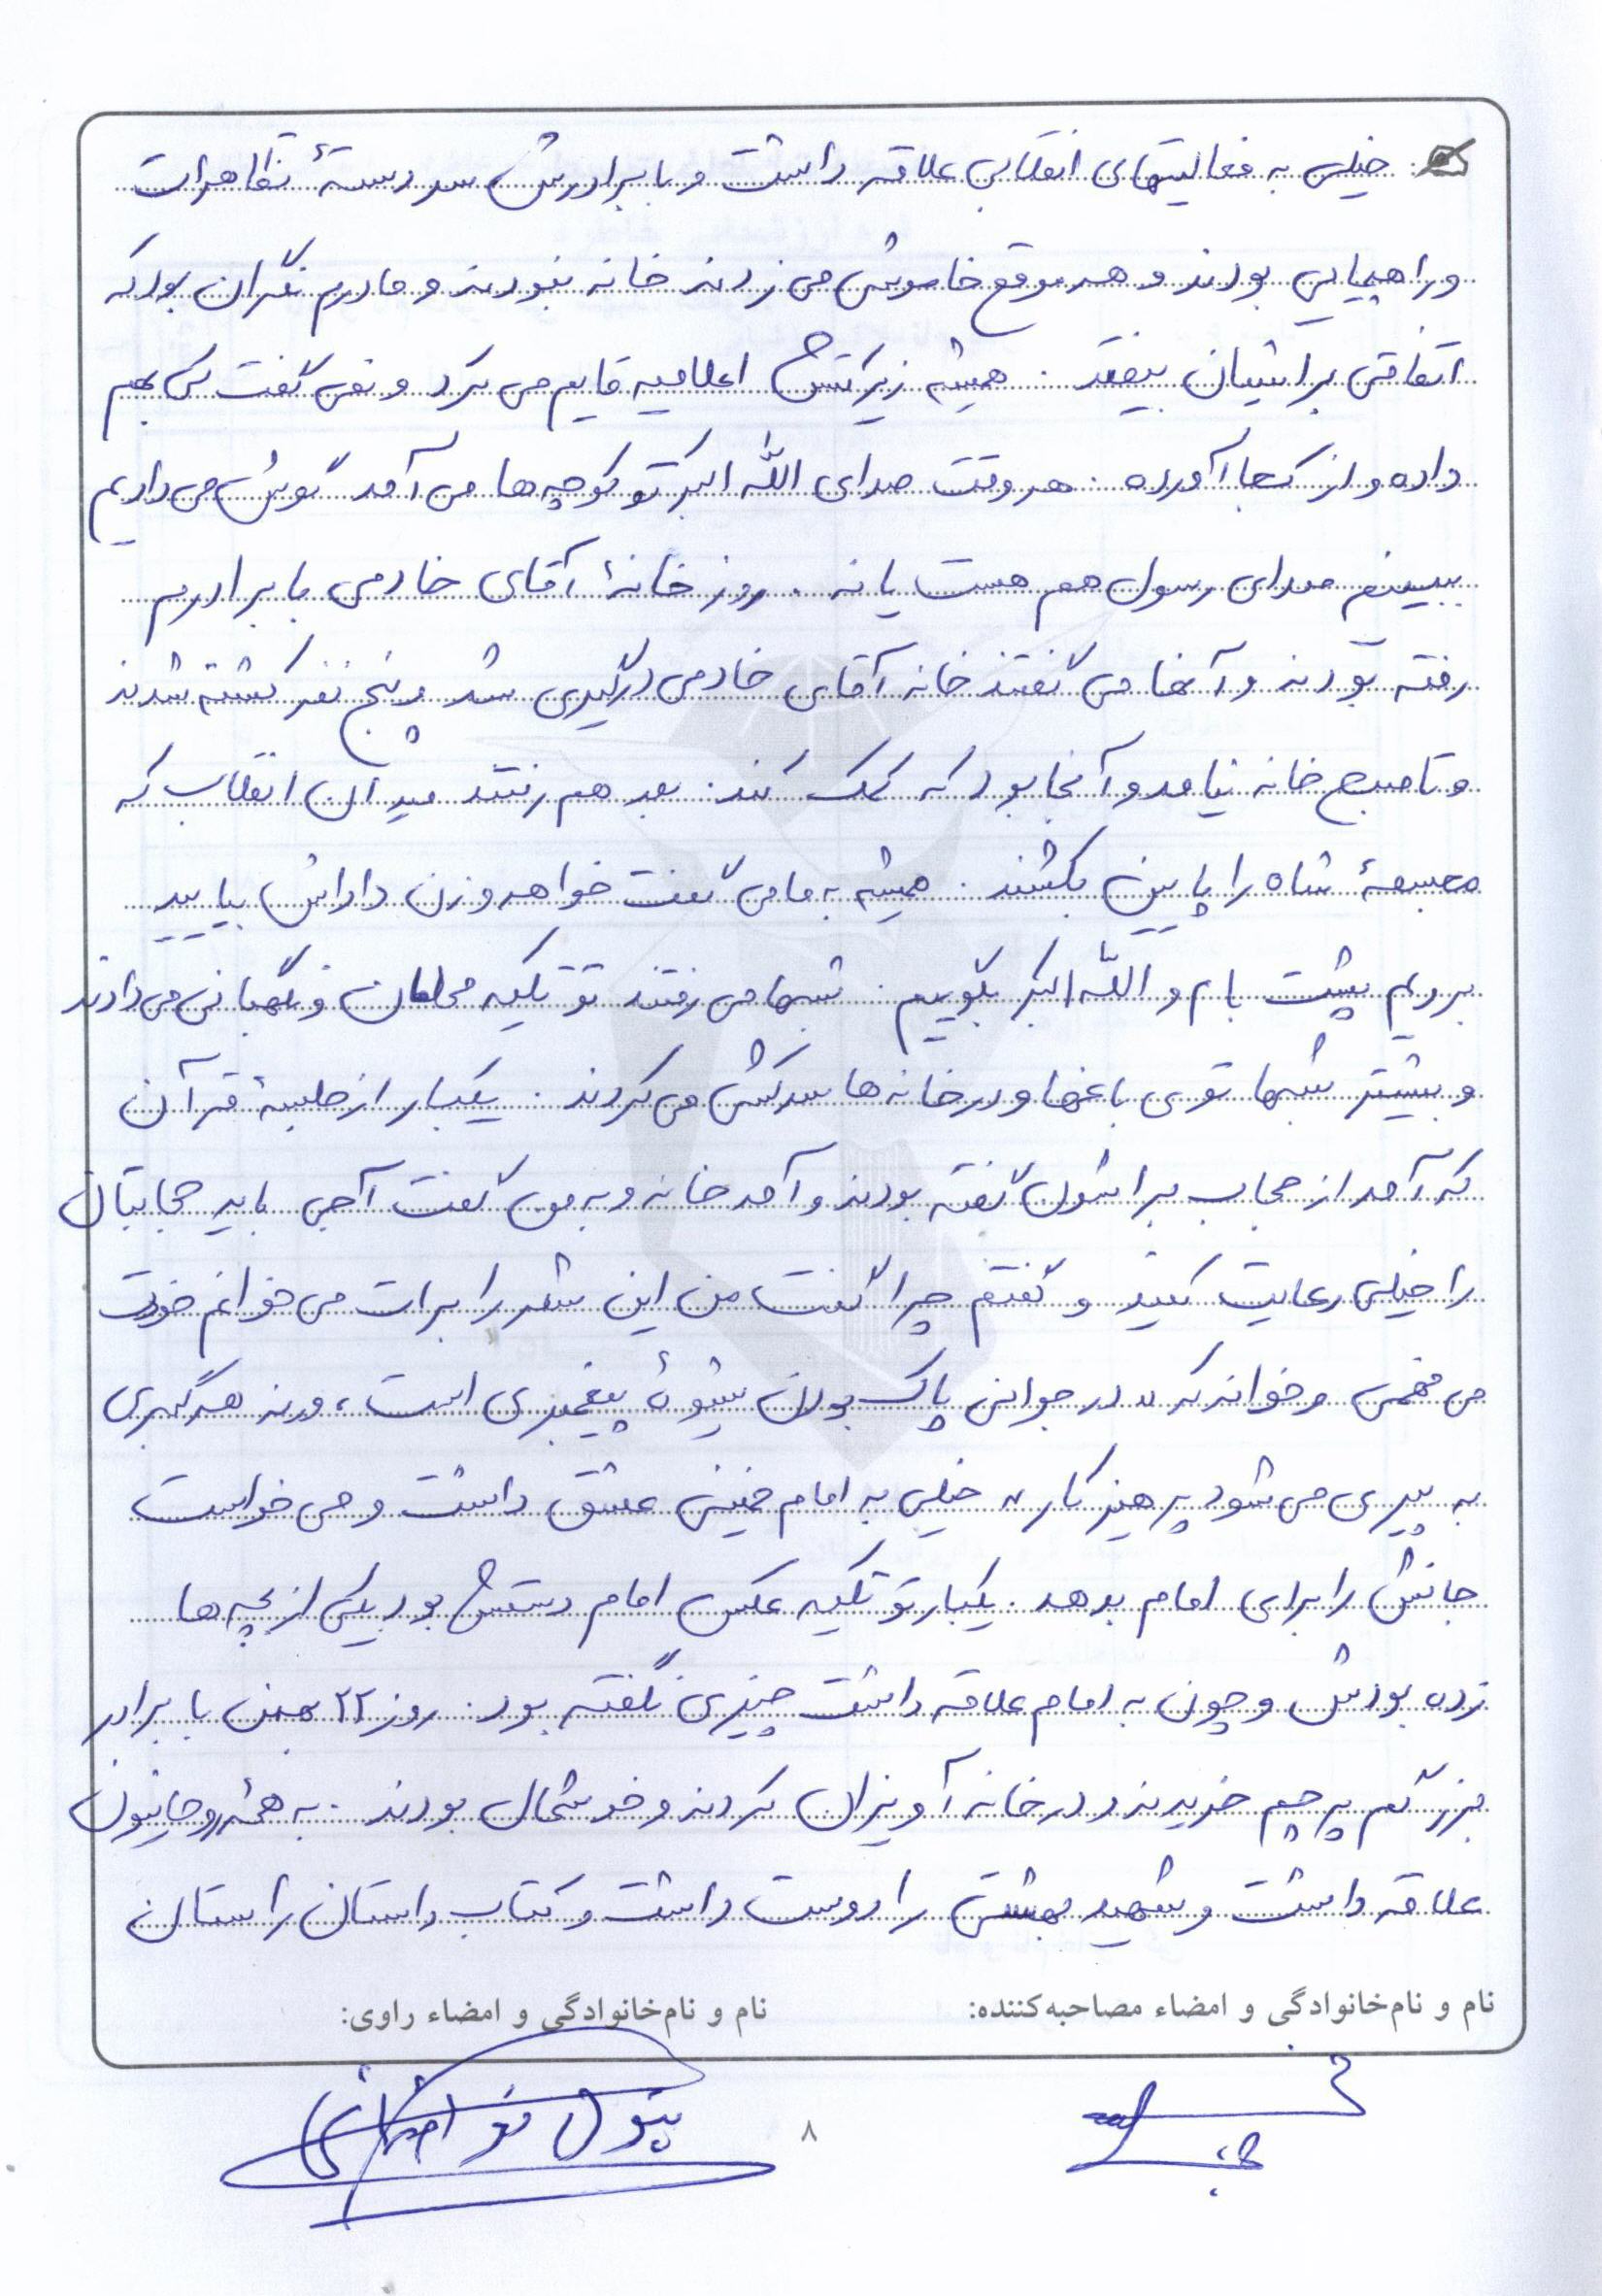 خیلی به فعالیتهای انقلابی علاقه داشت و با برادرش سر دستهٔ تظاهرات
و راهپیمایی بودند و هر موقع خاموشی می زدند خانه نبودند و مادرم نگران بود که
اتفاقی براشان بیفتد . همیشه زیر کتش اعلامیه قایم می کرد و نمی گفت کی بهم
داده و از کجا آورده . هر وقت صدای الله اکبر تو کوچه ها می آمد گوش می دادیم
ببینم صدای رسول هم هست یا نه . روز خانهٔ آقای خادمی با برادرم
رفته بودند و آنها می گفتند خانه آقای خادمی درگیری شد و پنج نفر کشته شدند
و تا صبح خانه نیامد و آنجا بود که کمک کند . بعد هم رفتند میدان انقلاب که
مجسمهٔ شاه را پایین بکشند . همیشه به ما می گفت خواهر و زن داداش بیایید
برویم پشت بام و الله اکبر بگوییم . شبها می رفتند تو تکیه محلمان و نگهبانی می دادند
و بیشتر شبها توی باغها و در خانه ها سرکشی می کردند . یکبار از جلسهٔ قرآن
که آمد از حجاب براشون گفته بودند و آمد خانه و به من گفت آجی باید حجابتان
را خیلی رعایت کنید و گفتم چرا گفت من این شعر را برات می خوانم خودت
می فهمی و خواند که « در جوانی پاک بودن شیوهٔ پیغمبری است ، ورنه هر گبری
به پیری می شود پرهیزکار » خیلی به امام خمینی عشق داشت و می خواست
جانش را برای امام بدهد . یکبار تو تکیه عکس امام دستش بود یکی از بچه ها
زده بودش و چون به امام علاقه داشت چیزی نگفته بود . روز ۲۲ بهمن با برادر
بزرگم پرچم خریدند و در خانه آویزان کردند و خوشحال بودند . به همه روحانیون
علاقه داشت و شهید بهشتی را دوست داشت و کتاب داستان راستان
نام و نام‌خانوادگی و امضاء مصاحبه‌کننده:
نام و نام‌خانوادگی و امضاء راوی:
بتول
۸